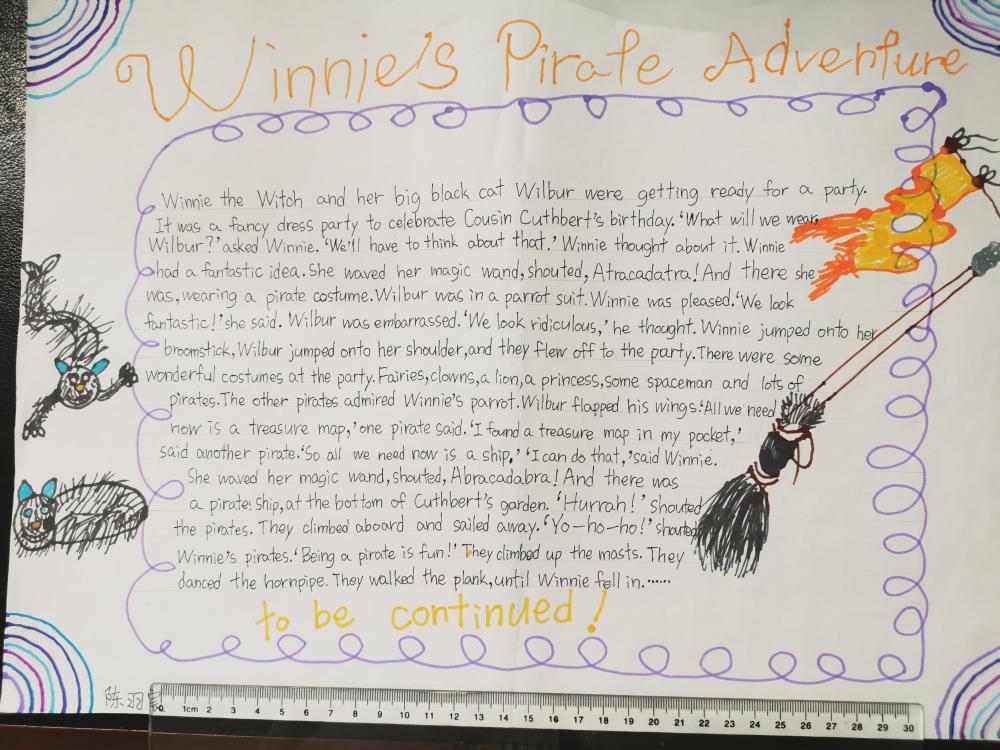 Winnie's Pirate Adventure
Winnie the Witch and her big black cat Wilbur were getting ready for a party.
It was a fancy dress party to celebrate Cousin Cuthbert's birthday.'What will we wear,
Wilbur?'asked Winnie.'We'll have to think about that.' Winnie thought about it. Winnie
had a fantastic idea. She waved her magic wand, shouted, Atracadatra! And there she
was, wearing a pirate costume. Wilbur was in a parrot suit. Winnie was pleased.'We look
fantastic!'she said. Wilbur was embarrassed.'We look ridiculous,' he thought. Winnie jumped onto her
broomstick, Wilbur jumped onto her shoulder, and they flew off to the party. There were some
wonderful costumes at the party. Fairies, clowns, a lion, a princess, some spaceman and lots of
pirates. The other pirates admired Winnie's parrot. Wilbur flapped his wings.'All we need
now is a treasure map,' one pirate said.'I found a treasure map in my pocket,'
said another pirate.'So all we need now is a ship.' 'I can do that,' said Winnie.
She waved her magic wand, shouted, Abracadabra! And there was
a pirate ship, at the bottom of Cuthbert's garden. 'Hurrah!' Shouted
the pirates. They climbed aboard and sailed away.'Yo-ho-ho!' shouted
Winnie's pirates.'Being a pirate is fun!' They climbed up the masts. They
danced the hornpipe. They walked the plank, until Winnie fell in.……
to be continued!
陈羽
0 1cm 2 3 4 5 6 7 8 9 10 11 12 13 14 15 16 17 18 19 20 21 22 23 24 25 26 27 28 29 30